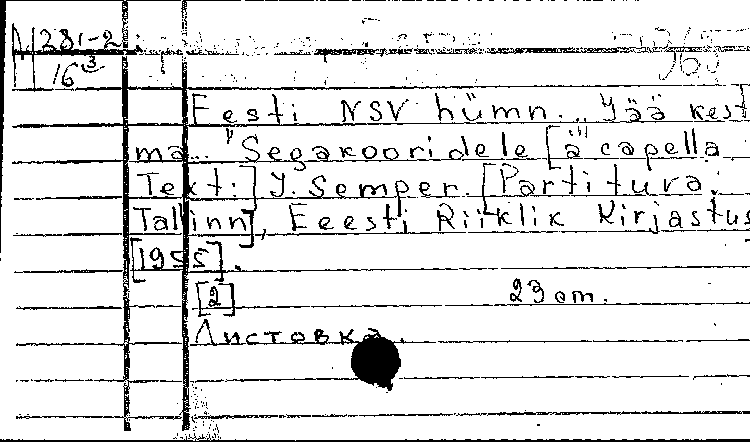 М 281-2
16³
Eesti NSV hümn. „Jää kest
ma... "Segakooridele [a capella
Tekt:] J. Semper. [Partitura.
Tallinn], Eeesti Riiklik Kirjastus
[1955].
[2] 23 cm.
Листовка.